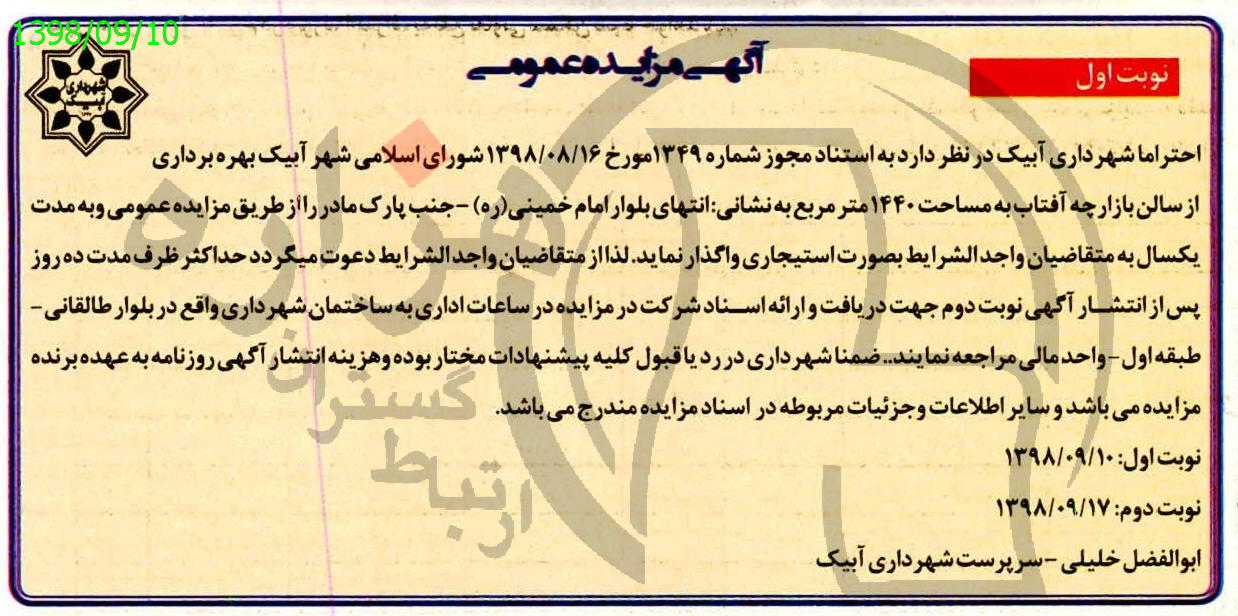 1398/09/10
آگهی مزایده عمومی
نوبت اول
شهرداری
آبیک
احتراما شهرداری آبیک در نظر دارد به استناد مجوز شماره ۱۳۴۹مورخ ۱۳۹۸/۰۸/۱۶شورای اسلامی شهر آبیک بهره برداری
از سالن بازارچه آفتاب به مساحت ۱۴۴۰متر مربع به نشانی:انتهای بلوار امام خمینی(ره) -جنب پارک مادر رااز طریق مزایده عمومی وبه مدت
یکسال به متقاضیان واجد الشرایط بصورت استیجاری واگذار نماید. لذا از متقاضیان واجد الشرایط دعوت میگردد حداکثر ظرف مدت ده روز
پس از انتشار آگهی نوبت دوم جهت دریافت و ارائه اسناد شرکت در مزایده در ساعات اداری به ساختمان شهرداری واقع در بلوار طالقانی -
طبقه اول - واحد مالی مراجعه نمایند.. ضمنا شهرداری در رد یا قبول کلیه پیشنهادات مختار بوده وهزینه انتشار آگهی روزنامه به عهده برنده
مزایده می باشد و سایر اطلاعات وجزئیات مربوطه در اسناد مزایده مندرج می باشد.
نوبت اول: ۱۳۹۸/۰۹/۱۰
نوبت دوم: ۱۳۹۸/۰۹/۱۷
ابوالفضل خلیلی -سرپرست شهرداری آبیک
هزاره
گستران
ارتباط